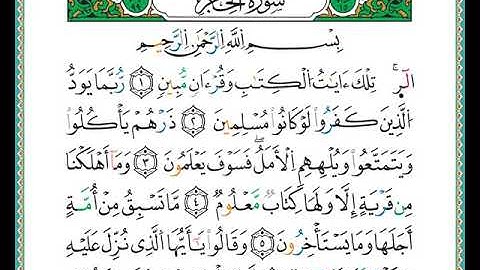 سورة الحجر
بِسْمِ اللَّهِ الرَّحْمَٰنِ الرَّحِيمِ
الٓر ۚ تِلْكَ ءَايَٰتُ الْكِتَٰبِ وَقُرْءَانٍ مُّبِينٍ ١ رُّبَمَا يَوَدُّ
الَّذِينَ كَفَرُوا لَوْ كَانُوا مُسْلِمِينَ ٢ ذَرْهُمْ يَأْكُلُوا
وَيَتَمَتَّعُوا وَيُلْهِهِمُ الْأَمَلُ ۖ فَسَوْفَ يَعْلَمُونَ ٣ وَمَا أَهْلَكْنَا
مِن قَرْيَةٍ إِلَّا وَلَهَا كِتَابٌ مَّعْلُومٌ ٤ مَّا تَسْبِقُ مِنْ أُمَّةٍ
أَجَلَهَا وَمَا يَسْتَـْٔخِرُونَ ٥ وَقَالُوا يَٰٓأَيُّهَا الَّذِي نُزِّلَ عَلَيْهِ